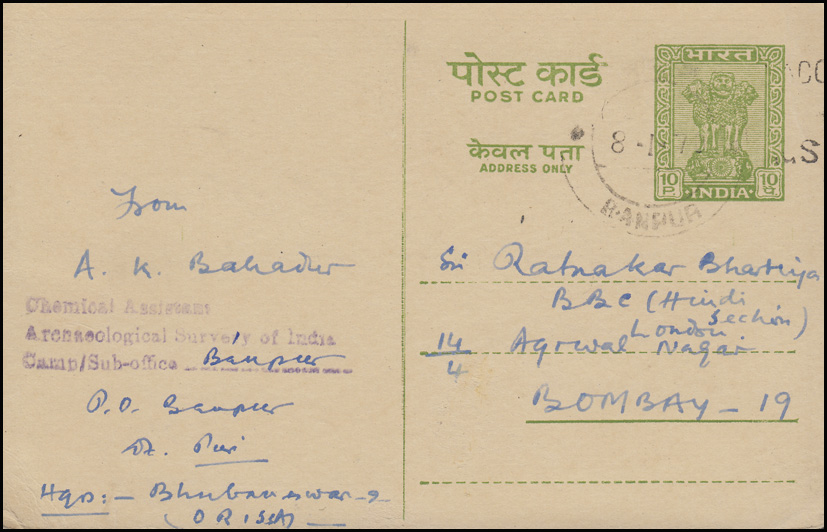 पोस्ट कार्ड
POST CARD
केवल पता
ADDRESS ONLY
भारत
10 P.
INDIA
10 प
8-
BANPUR
From
A. K. Bahadur
Chemical Assistant
Archaeological Survey of India
Camp/Sub-office Banpur
P.O. Banpur
Dt. Puri
Hqrs:- Bhubaneswar-2
(ORISSA)
Sri Ratnakar Bhartiya
BBC (Hindi
Section)
London
14/4 Agrwal Nagar
BOMBAY-19